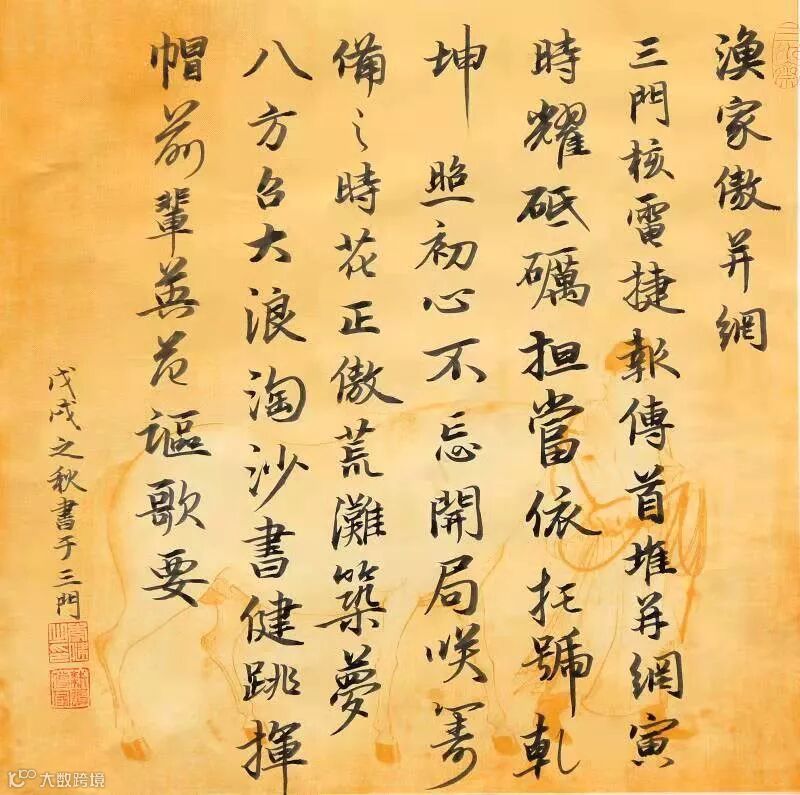 漁家傲并網
三門核電捷報傳首堆并網寅
時耀砥礪担當依托號乹
坤 照初心不忘開局咲筹
備之時花正傲荒灘築夢
八方召大浪淘沙書健跳揮
帽前輩英謳歌要
戊戌之秋書于三門
大数跨境